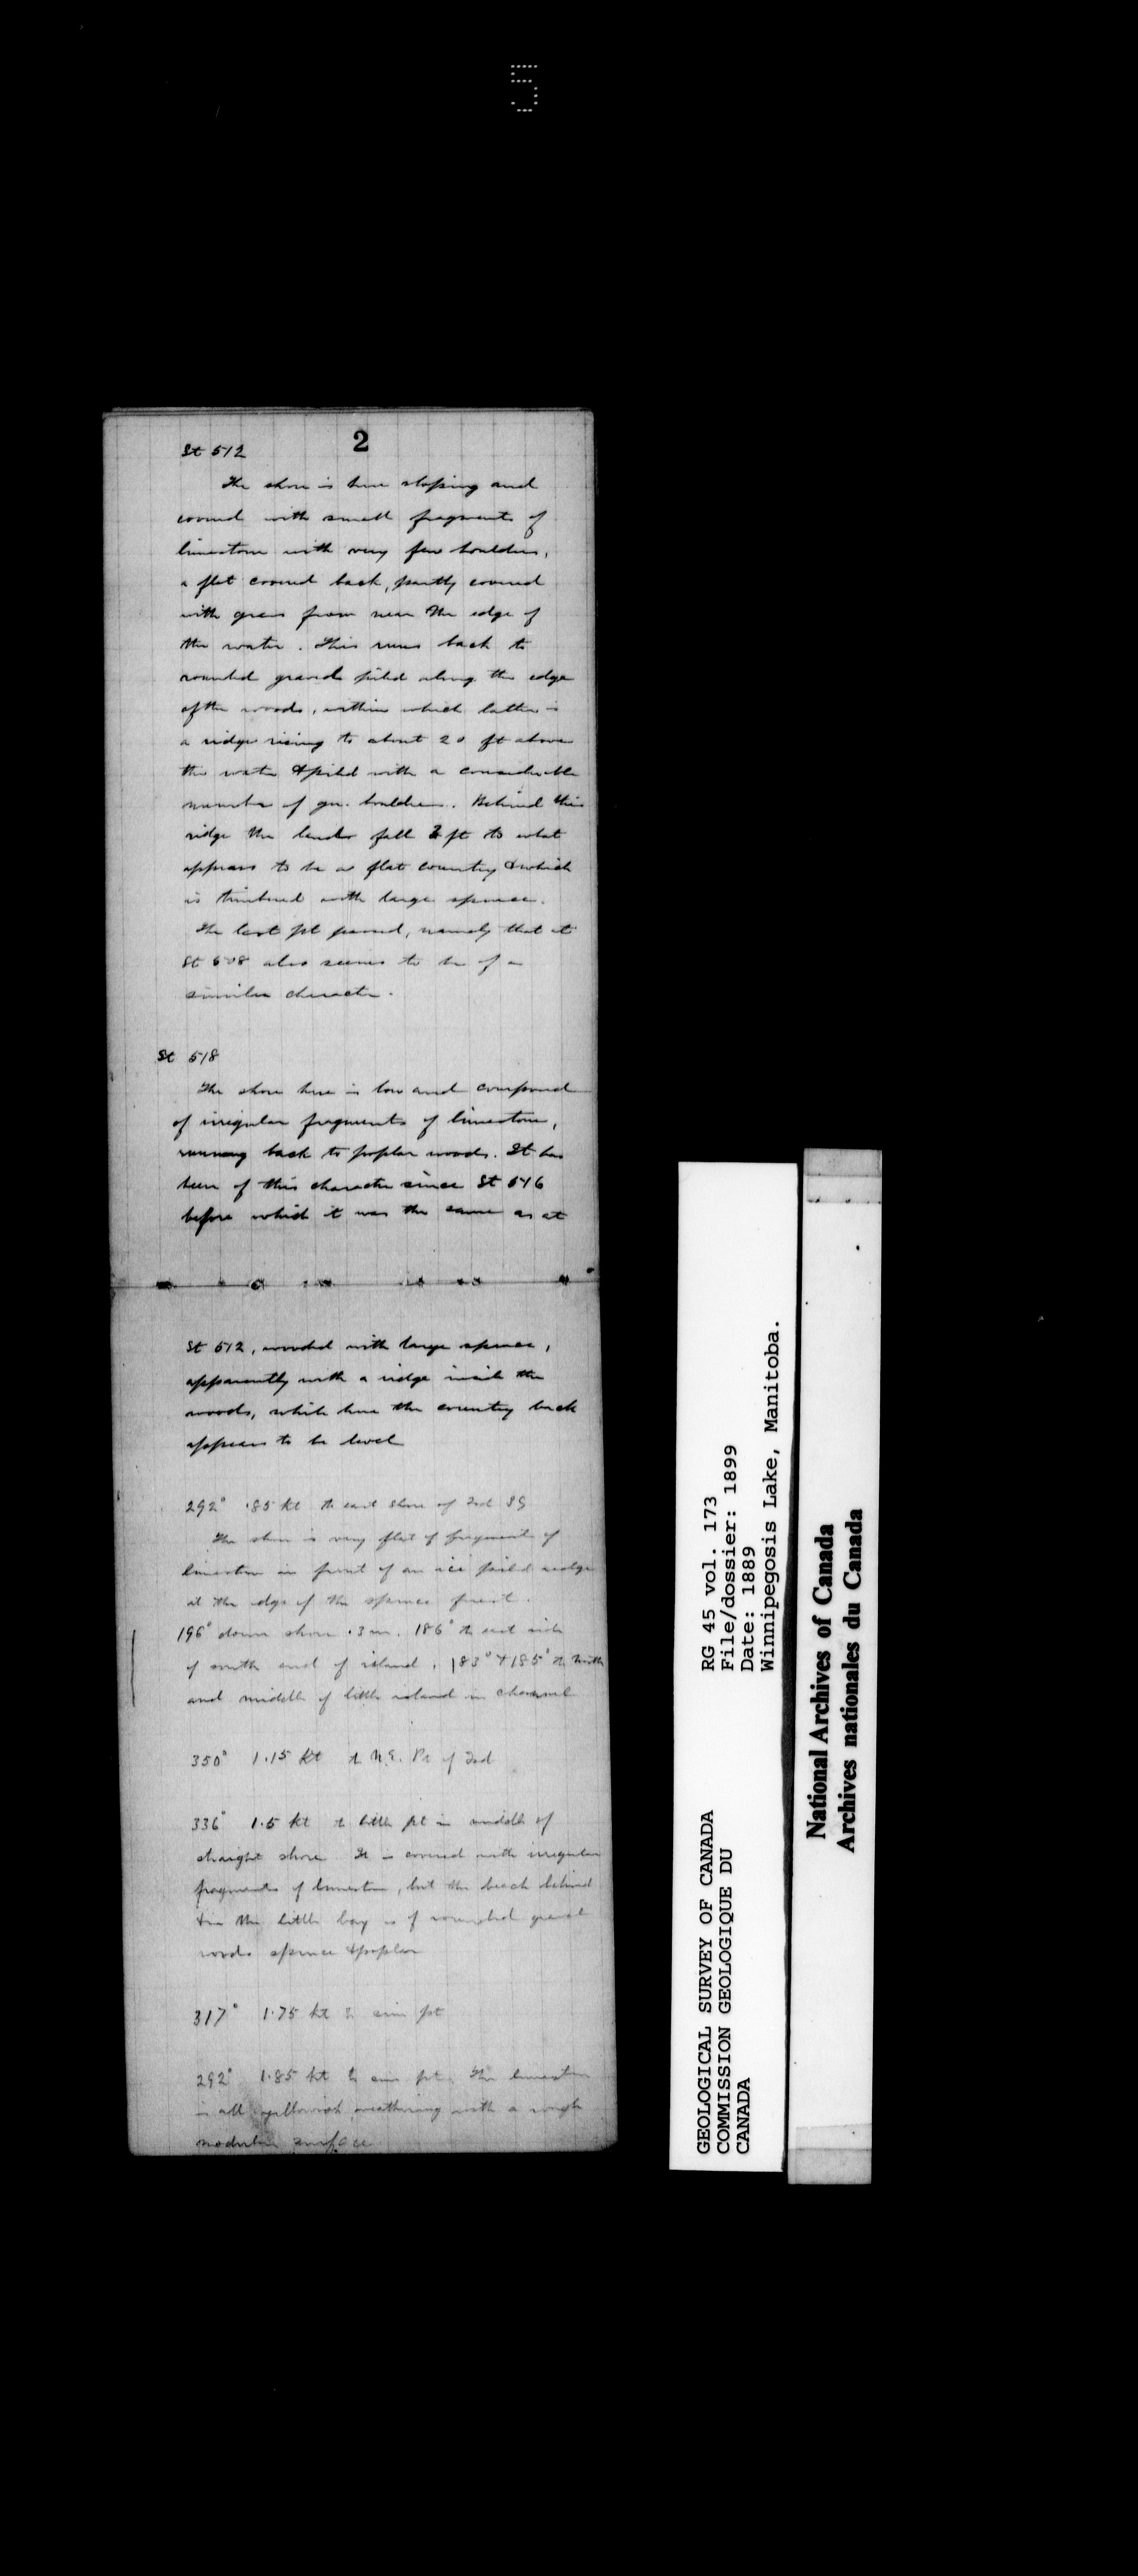 5
2
St 512
The shore is here sloping and
covered with small fragments of
limestone with very few boulders,
a flat covered back, partly covered
with grass from near the edge of
the water. This runs back to
rounded gravel piled along the edge
of the woods, within which latter is
a ridge rising to about 20 ft above
the water & piled with a considerable
number of gn. boulders. Behind this
ridge the land falls 3 ft to what
appears to be a flat country & which
is timbered with large spruce.
The last pt passed, namely that at
St 508 also seems to be of a
similar character.
St 518
The shore here is low and composed
of irregular fragments of limestone,
running back to poplar woods. It has
been of this character since St 516
before which it was the same as at
St 512, wooded with large spruce,
apparently with a ridge inside the
woods, while here the country back
appears to be level
292° .85 kt to east shore of Isd
The shore is very flat of fragments of
limestone in front of an ice piled ridge
at the edge of the spruce forest.
196° down shore .3 m. 186° to east side
of south end of island, 183° & 185° to north
and middle of little island in channel
350° 1.15 kt to N.E. Pt of Isd
336° 1.5 kt to little pt in middle of
straight shore. It is covered with irregular
fragments of limestone, but the beach behind
& in the little bay is of rounded gravel
woods spruce & poplar
317° 1.75 kt to sim pt
292° 1.85 kt to sim pt. The limestone
is all yellowish weathering with a rough
nodular surface
GEOLOGICAL SURVEY OF CANADA
COMMISSION GEOLOGIQUE DU
CANADA
RG 45 vol. 173
File/dossier: 1899
Date: 1889
Winnipegosis Lake, Manitoba.
National Archives of Canada
Archives nationales du Canada